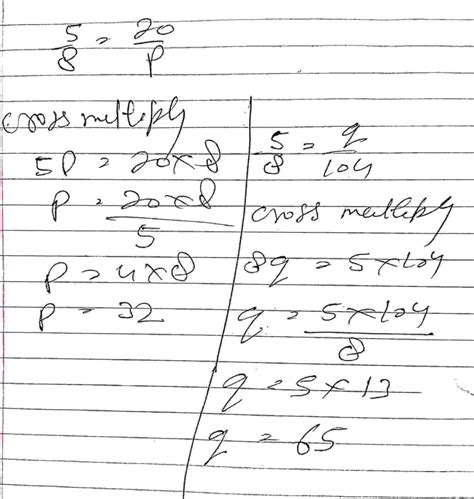 5/8 = 20/P
cross multiply
5P = 20×8
P = 20×8/5
P = 4×8
P = 32
5/8 = q/104
cross multiply
8q = 5×104
q = 5×104/8
q = 5×13
q = 65